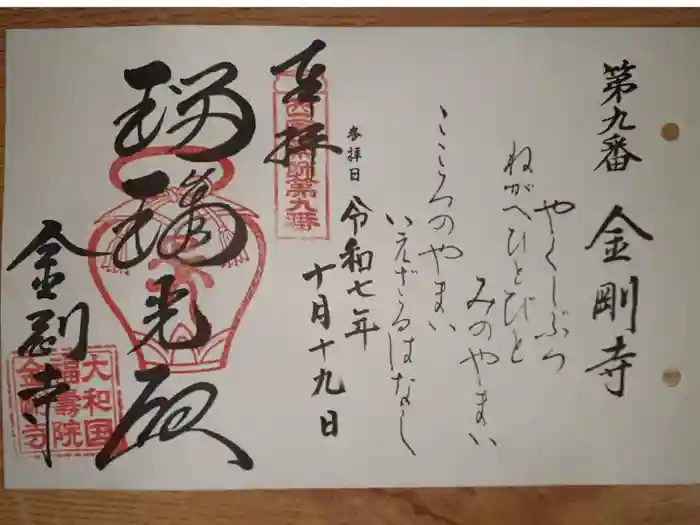 第九番 金剛寺
やくしぶつ
ねがへひとびと
みのやまい
こころのやまい
いえざるはなし
参拝日 令和七年
十月十九日
奉拝
西国薬師第九番
瑠璃光殿
金剛寺
大和国
福寿院
金剛寺